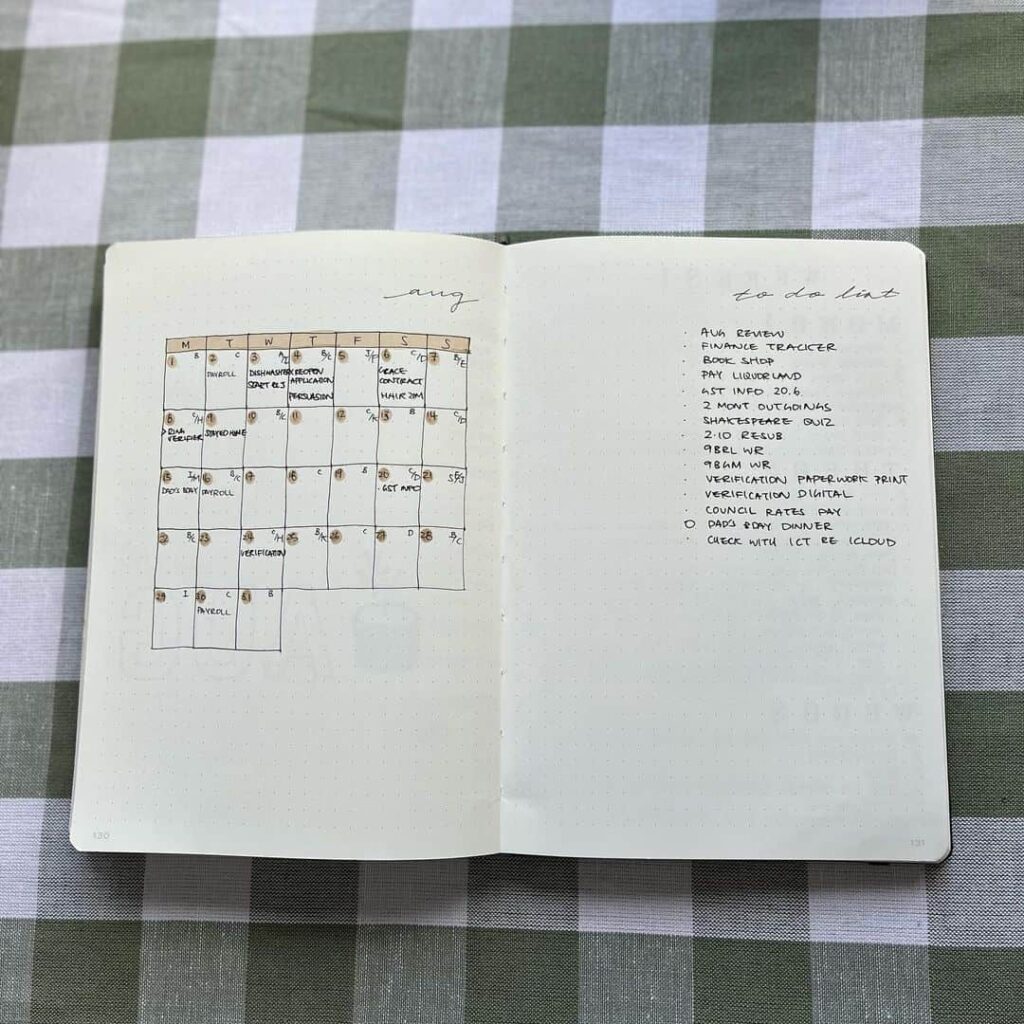 aug
M T W T F S S
1 B 2 C 3 4 B/C 5 6 C/D 7 B/E
PAYROLL DISHWASHER REOPEN GRACE
START Q3 APPLICATION CONTRACT
PERSUASION HAIR 2PM
8 C/H 9 10 B/C 11 12 C/K 13 B 14 C/D
> RING STAYED HOME
VERIFIER
15 I/M 16 B/C 17 18 C 19 B 20 C/D 21
DAD'S BDAY PAYROLL GST INFO
22 B/C 23 24 C/H 25 B/K 26 C 27 D 28 B/C
VERIFICATION
29 I 30 C 31 B
PAYROLL
130
to do list
· AUG REVIEW
· FINANCE TRACKER
· BOOK SHOP
· PAY LIQUORLAND
· GST INFO 20.6
· 2 MONT OUTGOINGS
· SHAKESPEARE QUIZ
· 2.10 RESUB
· 9BRL WR
· 9BGM WR
· VERIFICATION PAPERWORK PRINT
· VERIFICATION DIGITAL
· COUNCIL RATES PAY
O DAD'S BDAY DINNER
· CHECK WITH ICT RE ICLOUD
131